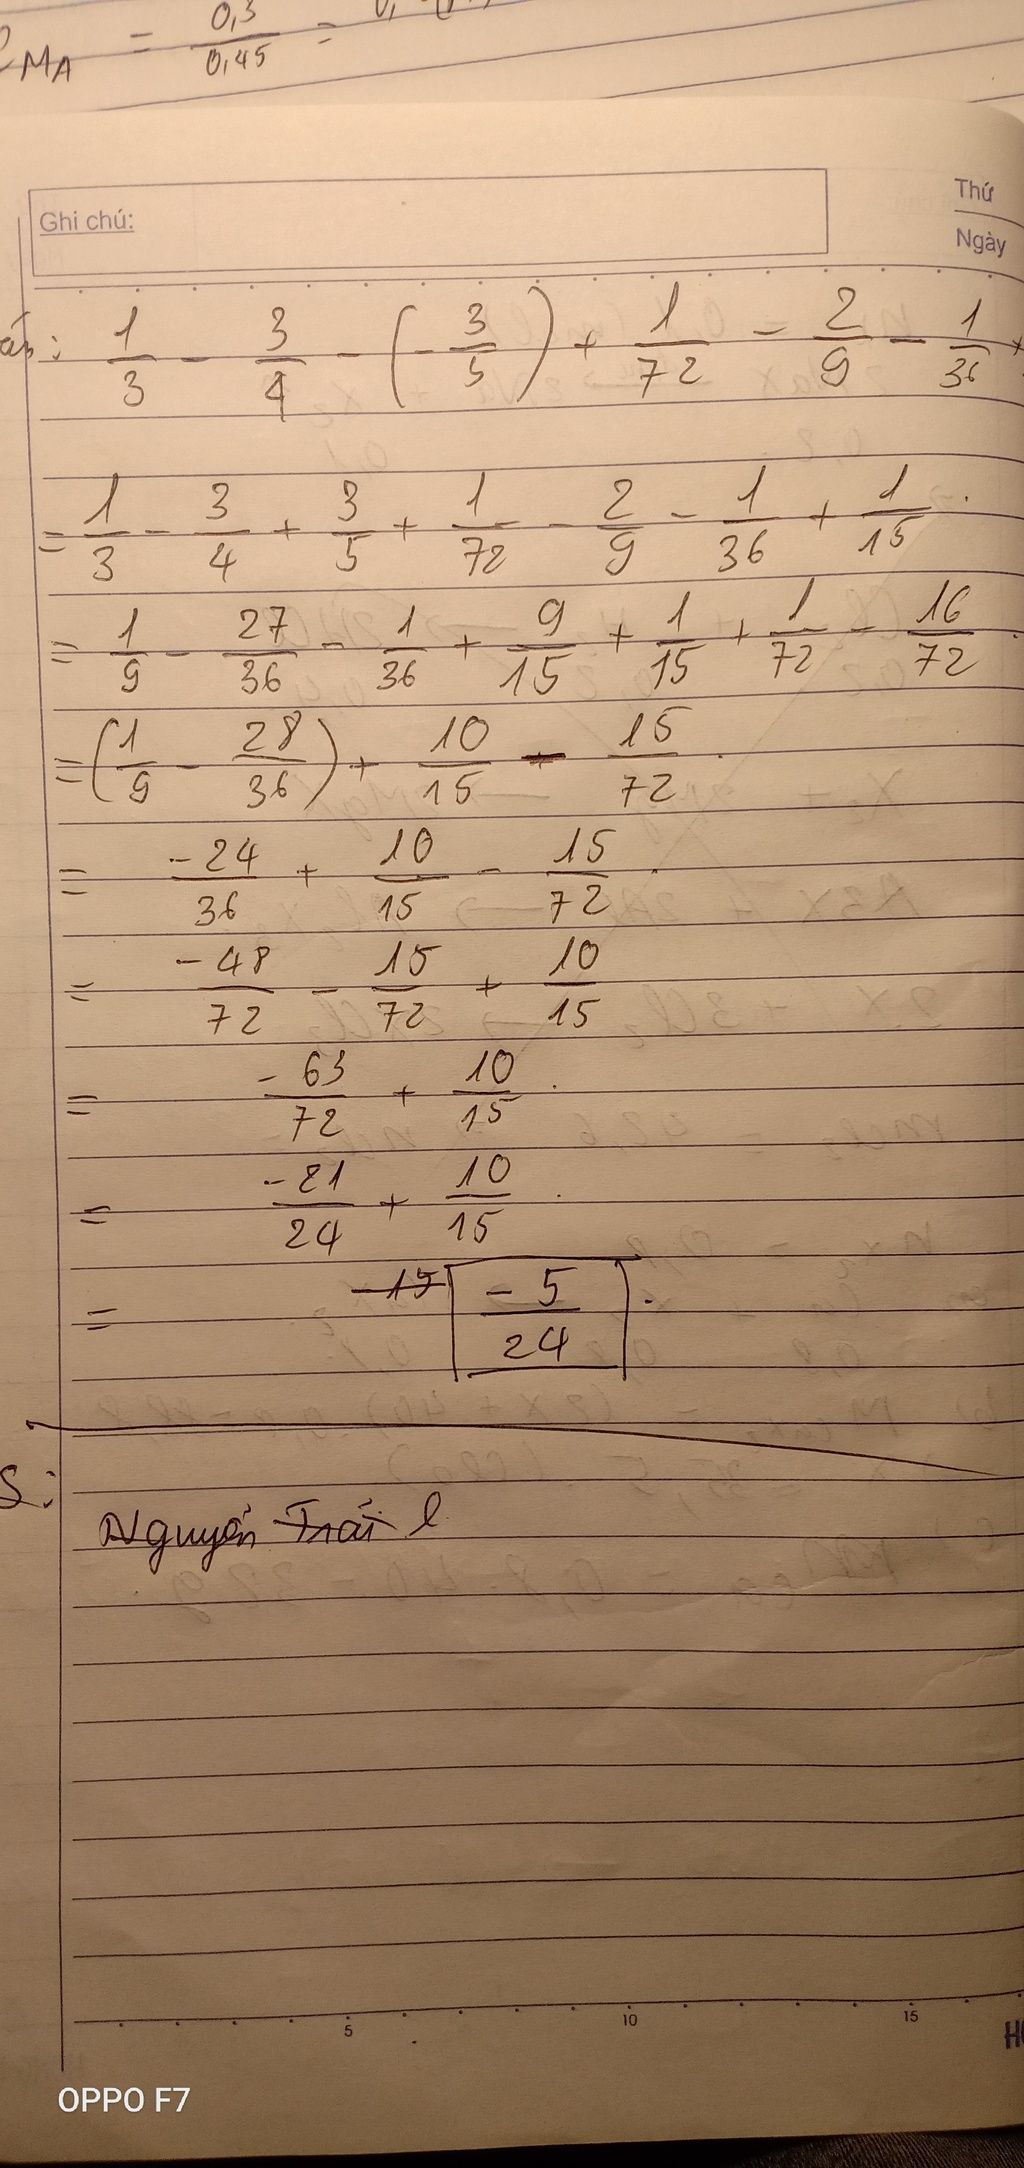 MA = 0,3/0,45 =
Ghi chú:
Thứ
Ngày
: 1/3 - 3/4 - (-3/5) + 1/72 - 2/9 - 1/36 +
= 1/3 - 3/4 + 3/5 + 1/72 - 2/9 - 1/36 + 1/15.
= 1/9 - 27/36 - 1/36 + 9/15 + 1/15 + 1/72 - 16/72.
= (1/9 - 28/36) + 10/15 - 15/72.
= -24/36 + 10/15 - 15/72.
= -48/72 - 15/72 + 10/15
= -63/72 + 10/15.
= -21/24 + 10/15.
= -15 -5/24.
S:
Nguyễn Trãi l
5 10 15
OPPO F7